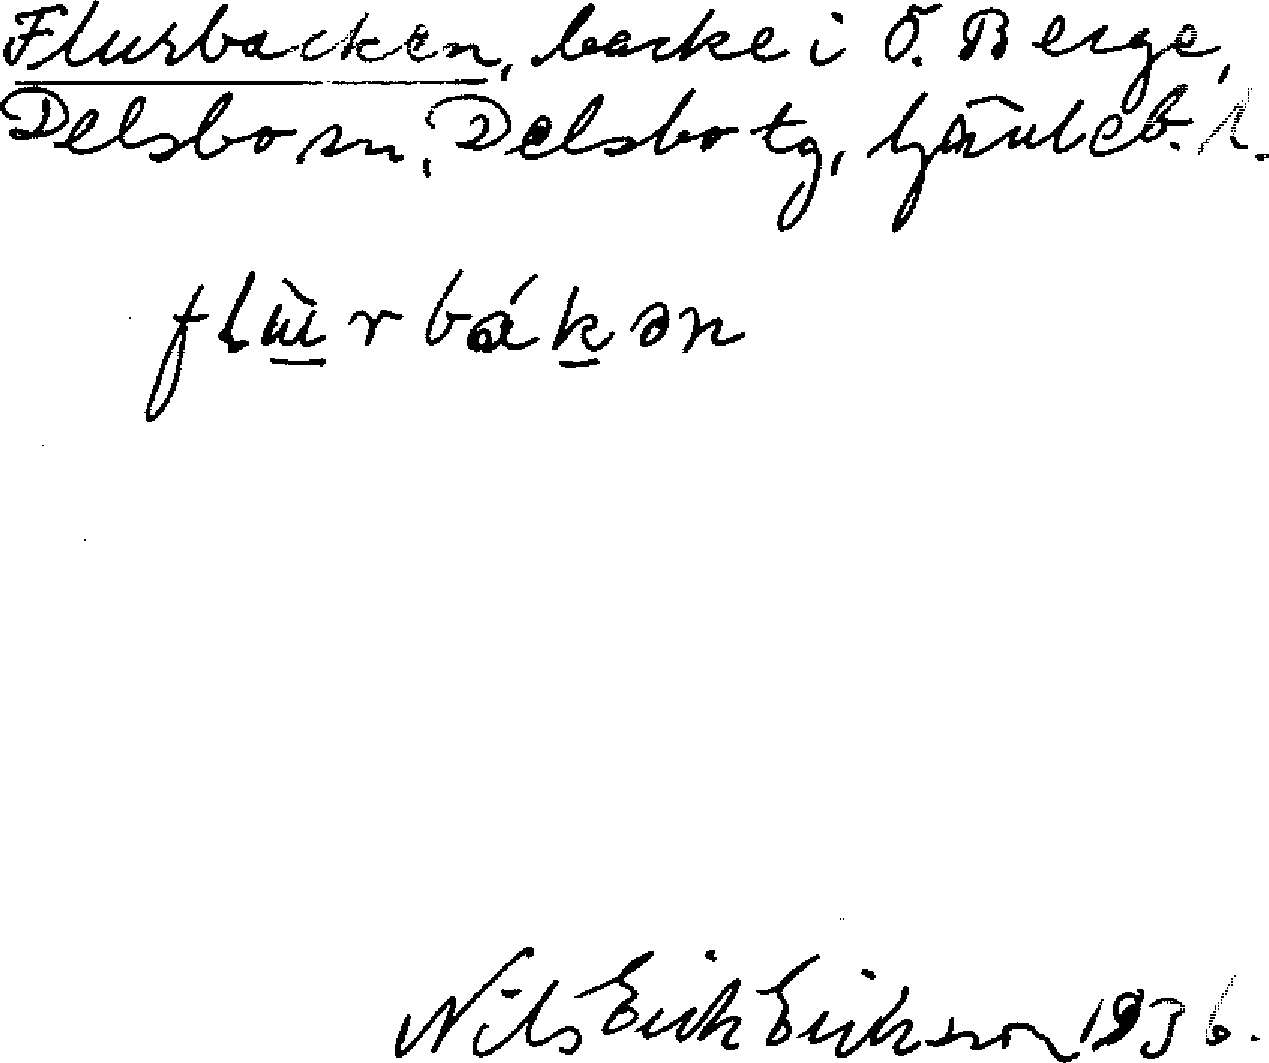 Flurbacken, backe i Ö. Berge,
Delsbo sn, Delsbo tg, Gävleb. l.
flùrbákən
Nils Erik Erikson 1936.